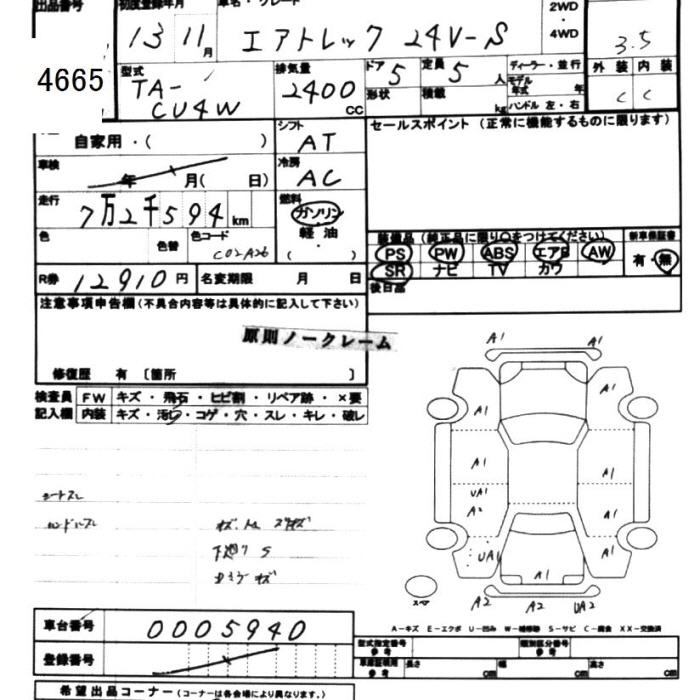 出品番号 初度登録年月 車名・グレード 2WD・4WD
4665 13 11月 エアトレック 24V-S 3.5
外装 内装
C C
型式 TA-CU4W
排気量 2400 CC
ドア 5 定員 5 人
形状 積載 kg
ディーラー・並行
モデル年式 年
ハンドル 左・右
自家用・( )
シフト AT
セールスポイント (正常に機能するものに限ります)
車検 年 月( 日)
冷房 AC
走行 7万2千594 km
燃料 ガソリン 軽油 ( )
色 色替 色コード C02A26
装備品 (純正品に限り○をつけてください)
PS PW ABS エアB AW
SR ナビ TV カワ
新車保証書 有・無
R券 12910円 名変期限 月 日
後日部
注意事項申告欄 (不具合内容等は具体的に記入して下さい)
原則ノークレーム
修復歴 有 〔箇所 〕
検査員記入欄 FW キズ・飛石・ヒビ割・リペア跡・×要
内装 キズ・汚れ・コゲ・穴・スレ・キレ・破レ
シートスレ
ハンドルスレ
下廻り S
A1 A1
A1 A1
A1 A1
UA1
A2 A1
UA1 A1
A1
スペア A2 A2 UA2
A-キズ E-エクボ U-凹み W-補修跡 S-サビ C-腐食 XX-交換済
車台番号 0005940
登録番号
型式指定番号 参考 類別区分番号 参考
車庫証明用 参考 長さ cm 幅 cm 高さ cm
希望出品コーナー (コーナーは各会場により異なります。)